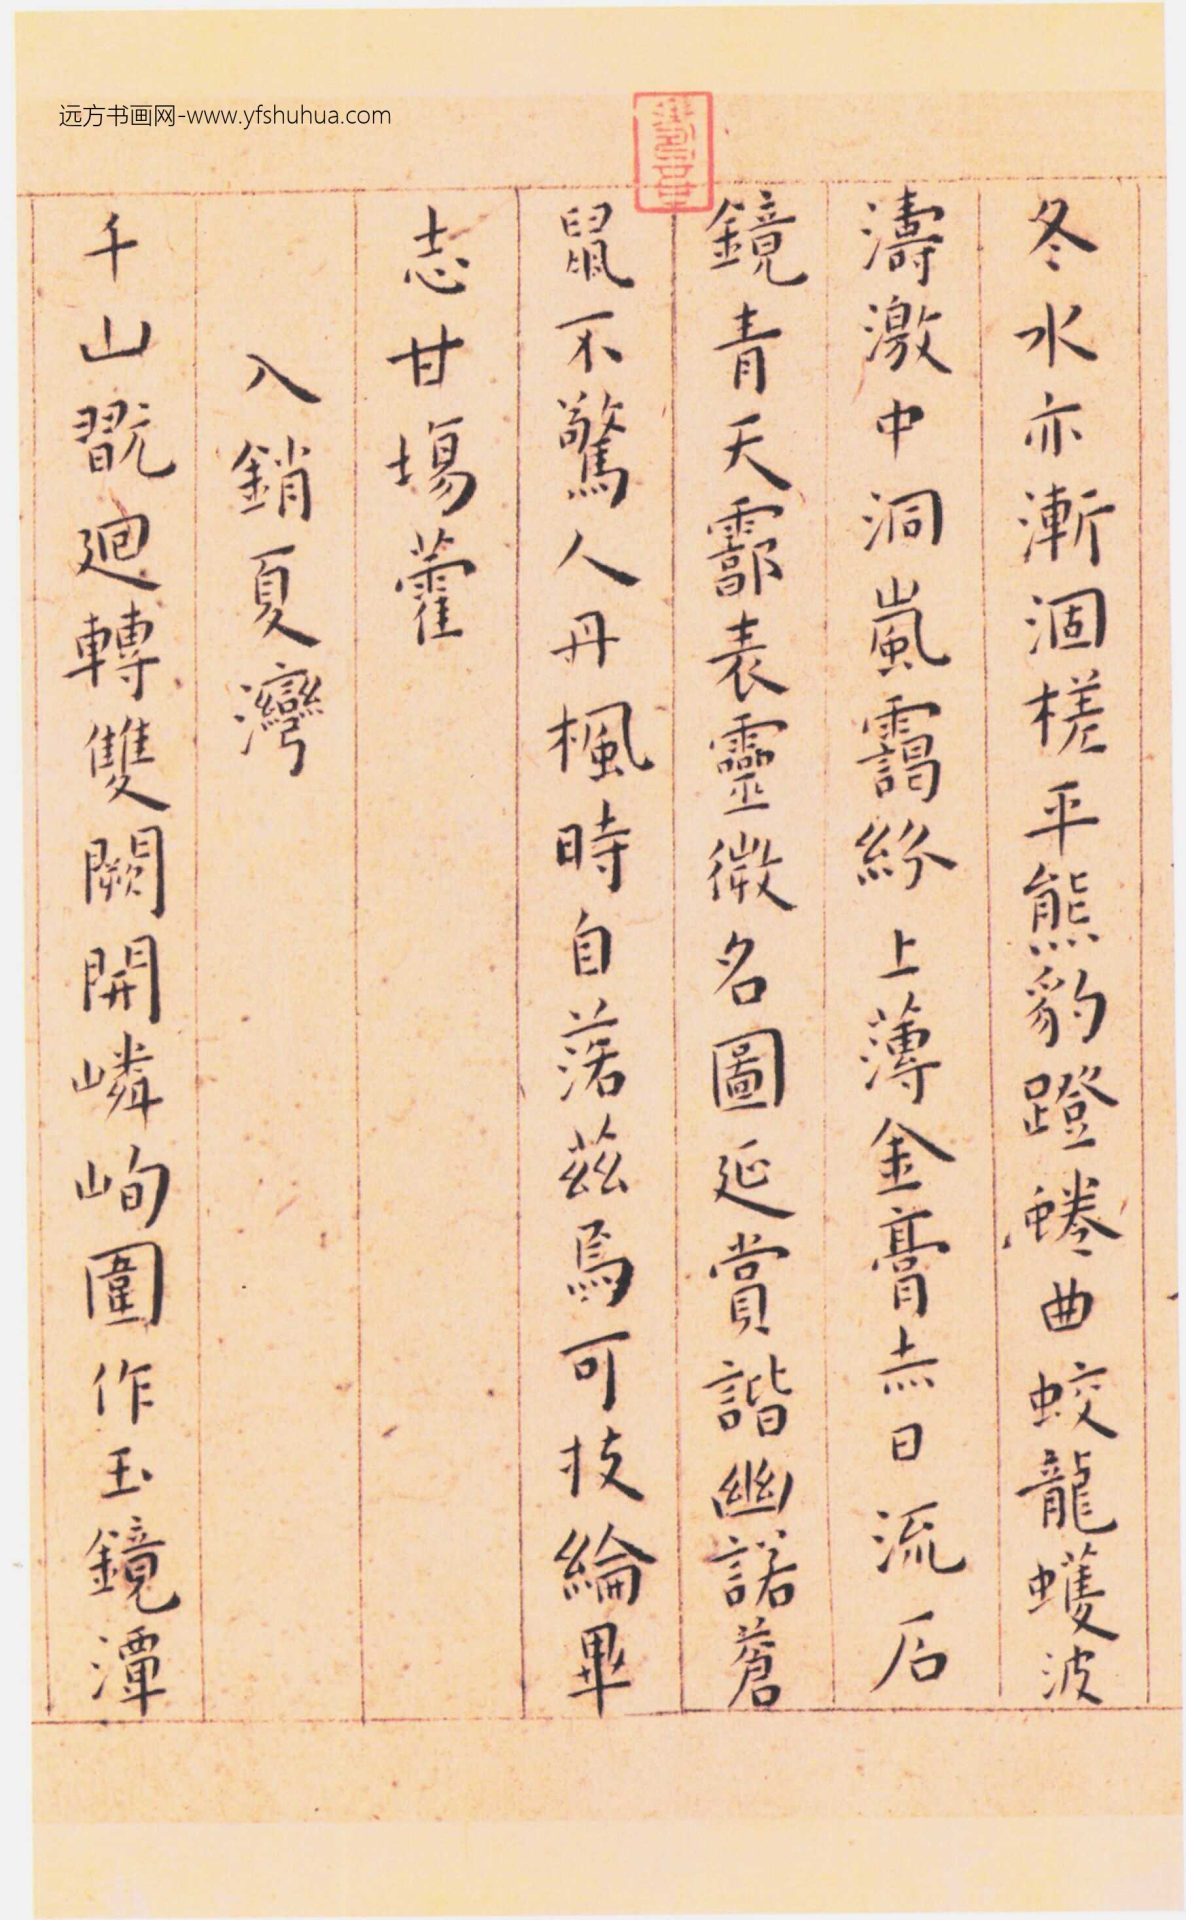 远方书画网-www.yfshuhua.com
冬水亦漸涸槎平熊豹蹬蜷曲蛟龍蠖波
濤激中洞嵐靄紛上薄金膏点日流石
鏡青天霩表靈微名圖延賞諧幽諾蒼
鼠不驚人丹楓時自落茲焉可投綸畢
志甘場藿
入銷夏灣
千山翫迴轉雙闕開嶙峋圍作玉鏡潭